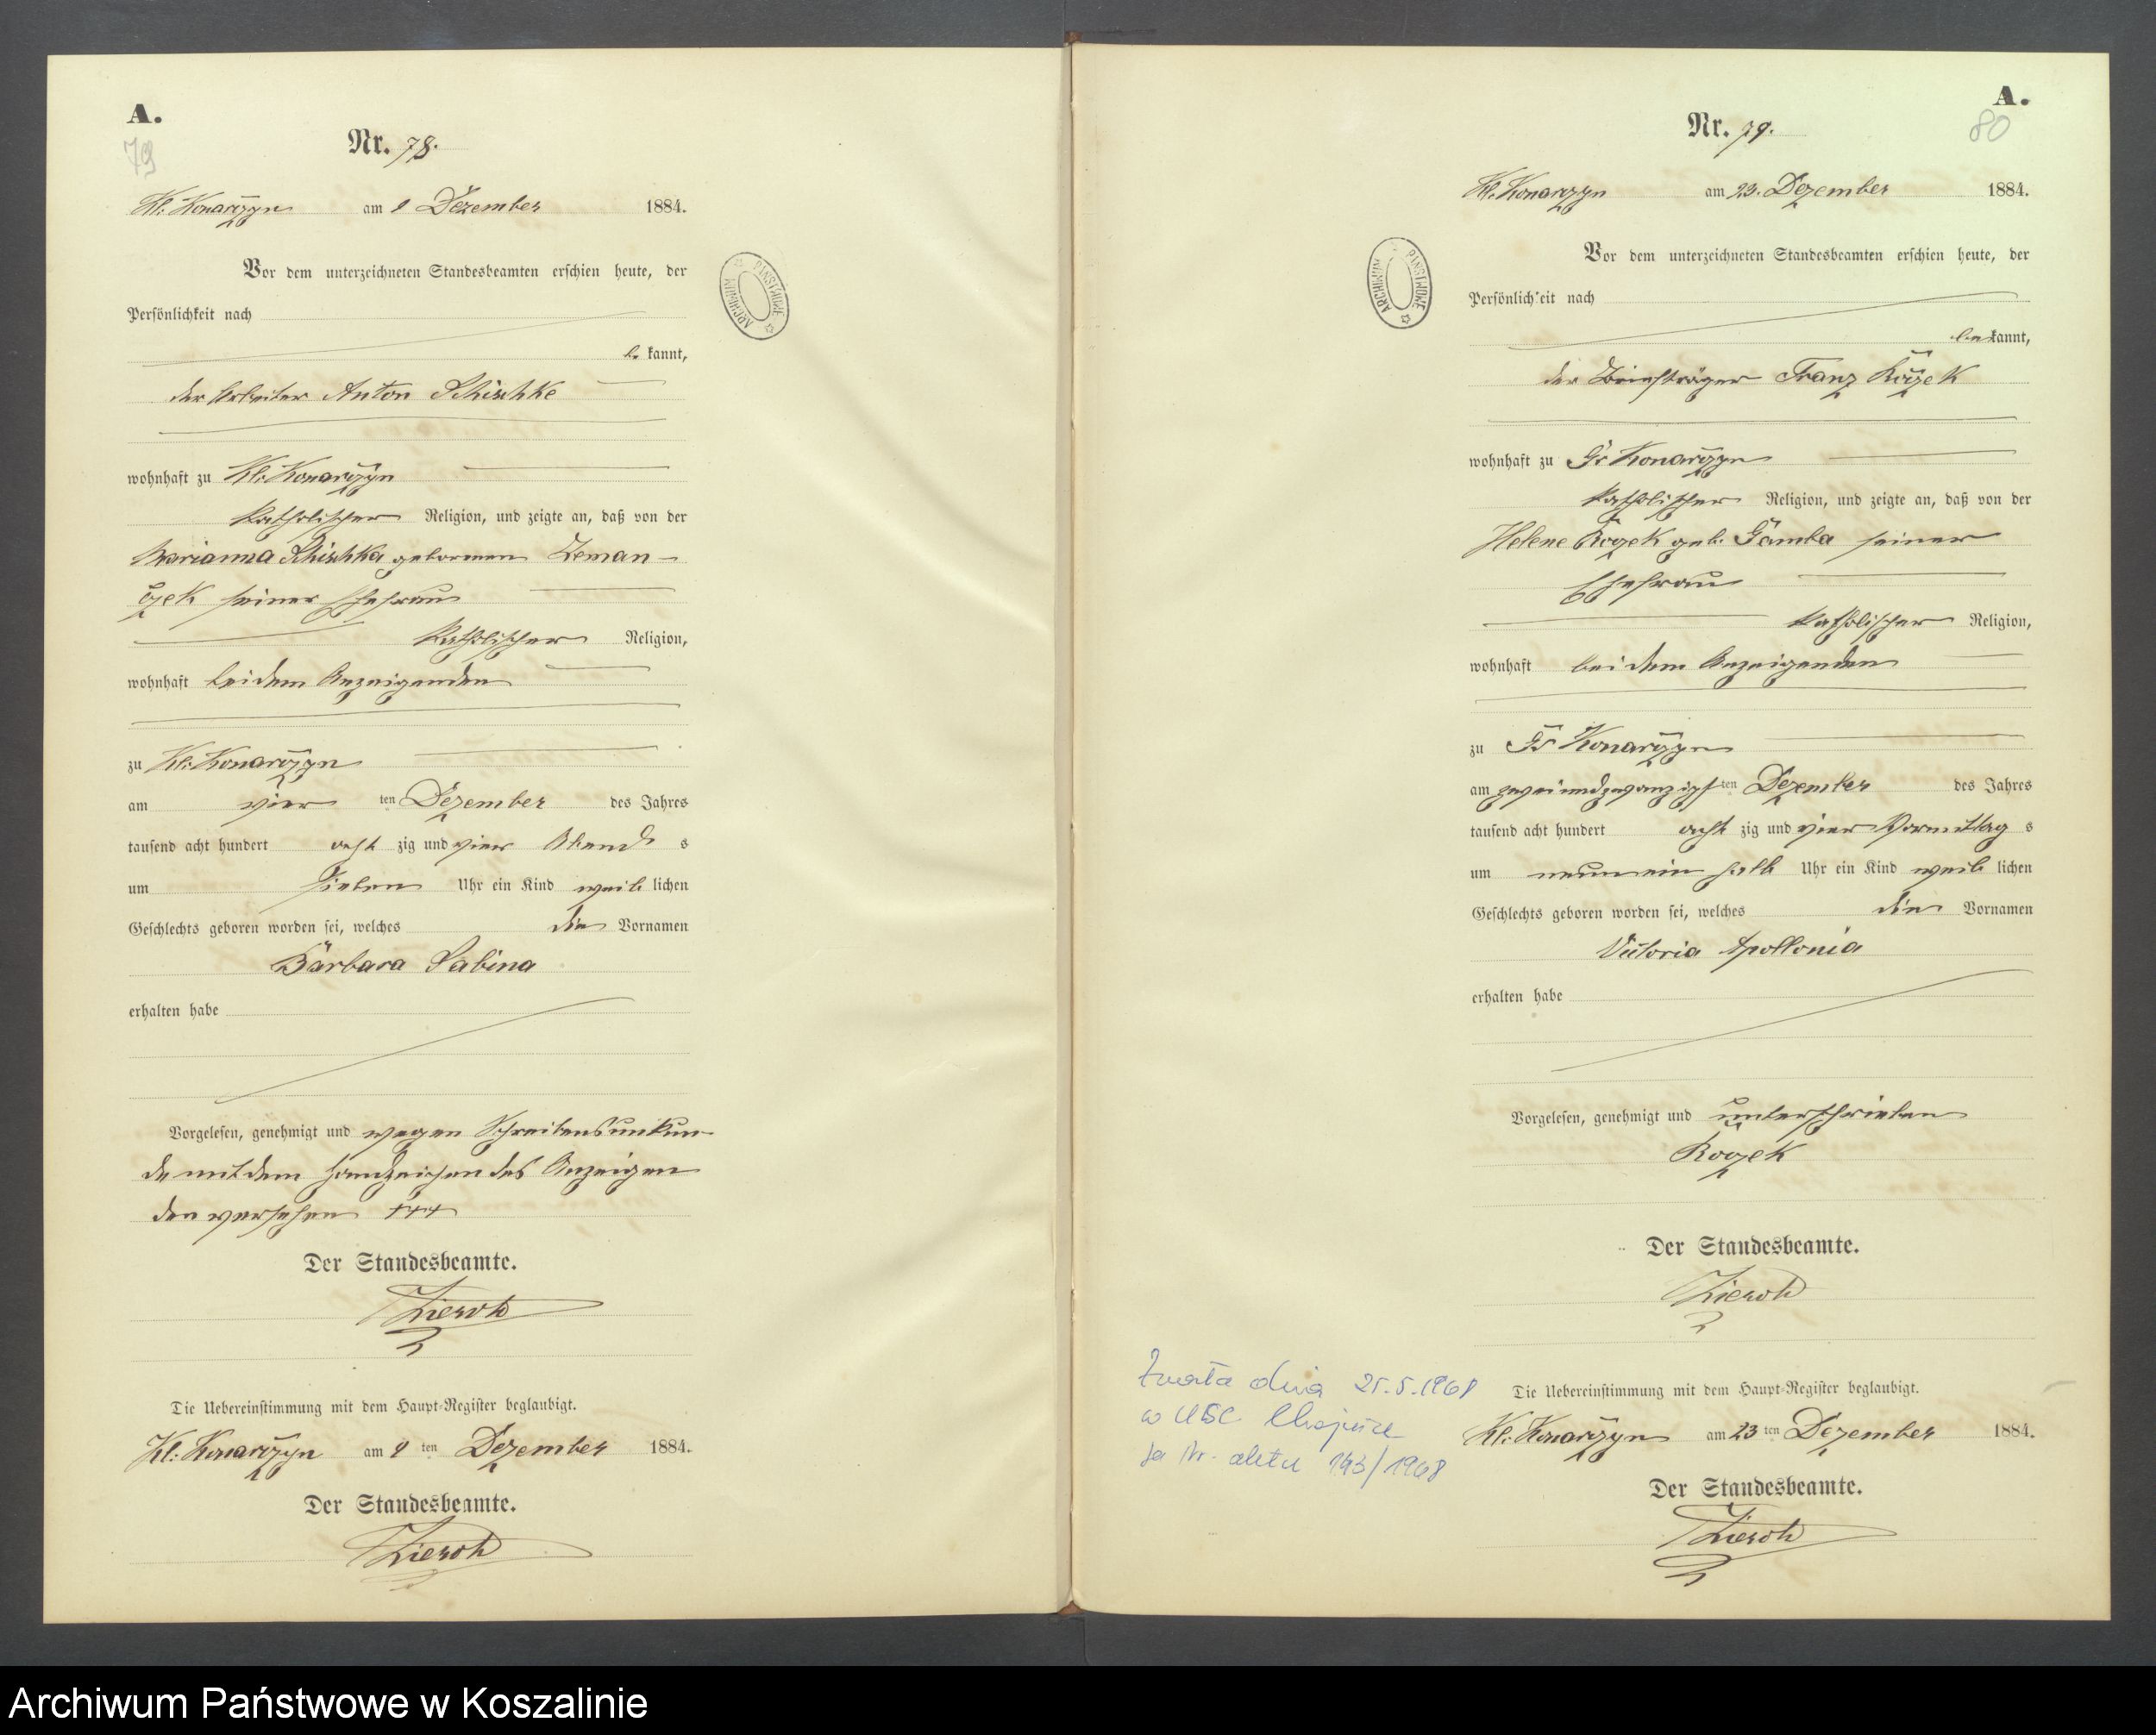 A.
79
Nr. 78.
Kl. Konarczyn am 9 Dezember 1884.
Vor dem unterzeichneten Standesbeamten erschien heute, der
Persönlichkeit nach
be kannt,
der Arbeiter Anton
wohnhaft zu Kl. Konarczyn
katholischer Religion, und zeigte an, daß von der
Marianna geborenen Zeman-
czek seiner Ehefrau
katholischer Religion,
wohnhaft bei dem Anzeigenden
zu Kl. Konarczyn
am vier ten Dezember des Jahres
tausend acht hundert acht zig und vier Abend s
um sieben Uhr ein Kind weib lichen
Geschlechts geboren worden sei, welches die Vornamen
Barbara Sabina
erhalten habe
Vorgelesen, genehmigt und wegen Schreibensunkun
de mit dem Handzeichen des Anzeigen
den versehen +++
Der Standesbeamte.
Die Uebereinstimmung mit dem Haupt-Register beglaubigt.
Kl. Konarczyn am 9 ten Dezember 1884.
Der Standesbeamte.
A.
80
Nr. 79.
Kl. Konarczyn am 23. Dezember 1884.
Vor dem unterzeichneten Standesbeamten erschien heute, der
Persönlichkeit nach
be kannt,
der Briefträger Franz Koczek
wohnhaft zu Gr Konarczyn
katholischer Religion, und zeigte an, daß von der
Helene Koczek geb. Gamba seiner
Ehefrau
katholischer Religion,
wohnhaft bei dem Anzeigenden
zu Gr Konarczyn
am zweiundzwanzigsten Dezember des Jahres
tausend acht hundert acht zig und vier Vormittag s
um neun ein halb Uhr ein Kind weib lichen
Geschlechts geboren worden sei, welches die Vornamen
Victoria Apollonia
erhalten habe
Vorgelesen, genehmigt und unterschrieben
Koczek
Der Standesbeamte.
Zmarła dnia 25.5.1968
w USC Chojnice
za Nr. aktu 143/1968
Die Uebereinstimmung mit dem Haupt-Register beglaubigt.
Kl. Konarczyn am 23 ten Dezember 1884.
Der Standesbeamte.
ARCHIWUM PAŃSTWOWE
ARCHIWUM PAŃSTWOWE
Archiwum Państwowe w Koszalinie